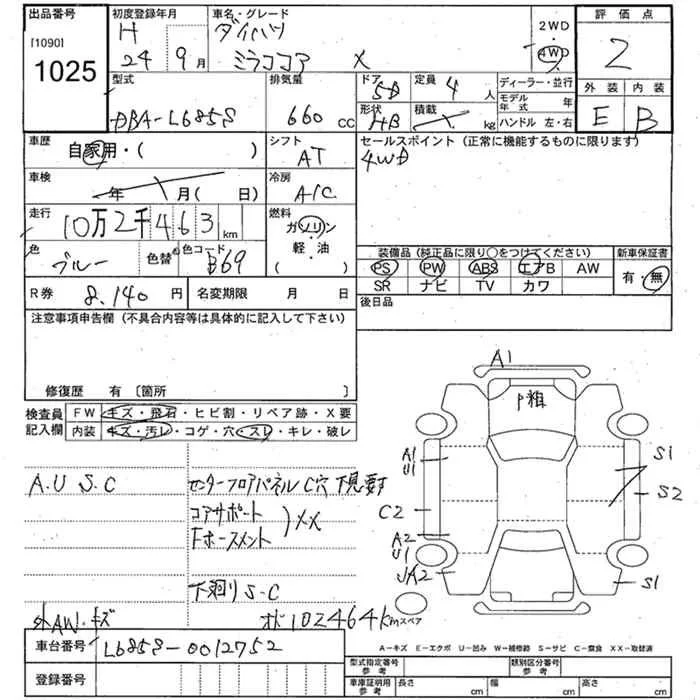 出品番号
[1090]
1025
初度登録年月
H
24 9月
車名・グレード
ダイハツ
ミラココア X
2WD
・
4WD
評価点
2
外装 内装
E B
型式
DBA-L685S
排気量
660 cc
ドア
5D
形状
HB
定員
4 人
積載
kg
ディーラー・並行
モデル年式 年
ハンドル 左・右
車歴
自家用・( )
シフト
AT
セールスポイント (正常に機能するものに限ります)
4WD
車検
年 月( 日)
冷房
A/C
走行
10万2千463 km
燃料
ガソリン
・
軽・油
( )
色
ブルー
色替
色コード
B69
装備品 (純正品に限り○をつけてください)
PS PW ABS エアB AW
SR ナビ TV カワ
新車保証書
有・無
R券 8,140 円
名変期限 月 日
後日品
注意事項申告欄 (不具合内容等は具体的に記入して下さい)
修復歴 有 〔箇所 〕
検査員記入欄
FW キズ・飛石・ヒビ割・リペア跡・X要
内装 キズ・汚レ・コゲ・穴・スレ・キレ・破レ
A.U S.C
センターフロアパネル C穴 下見要す
コアサポート
Fホースメント
XX
下廻り S-C
外AW・キズ
オド102464km
スペア
A1
P雑
A1
U1
C2
A2
U1
UA2
S1
S2
S1
A−キズ E−エクボ U−凹み W−補修跡 S−サビ C−腐食 XX−取替済
車台番号 L685S-0012752
登録番号
型式指定番号 参考
類別区分番号 参考
車庫証明用 参考
長さ cm 幅 cm 高さ cm